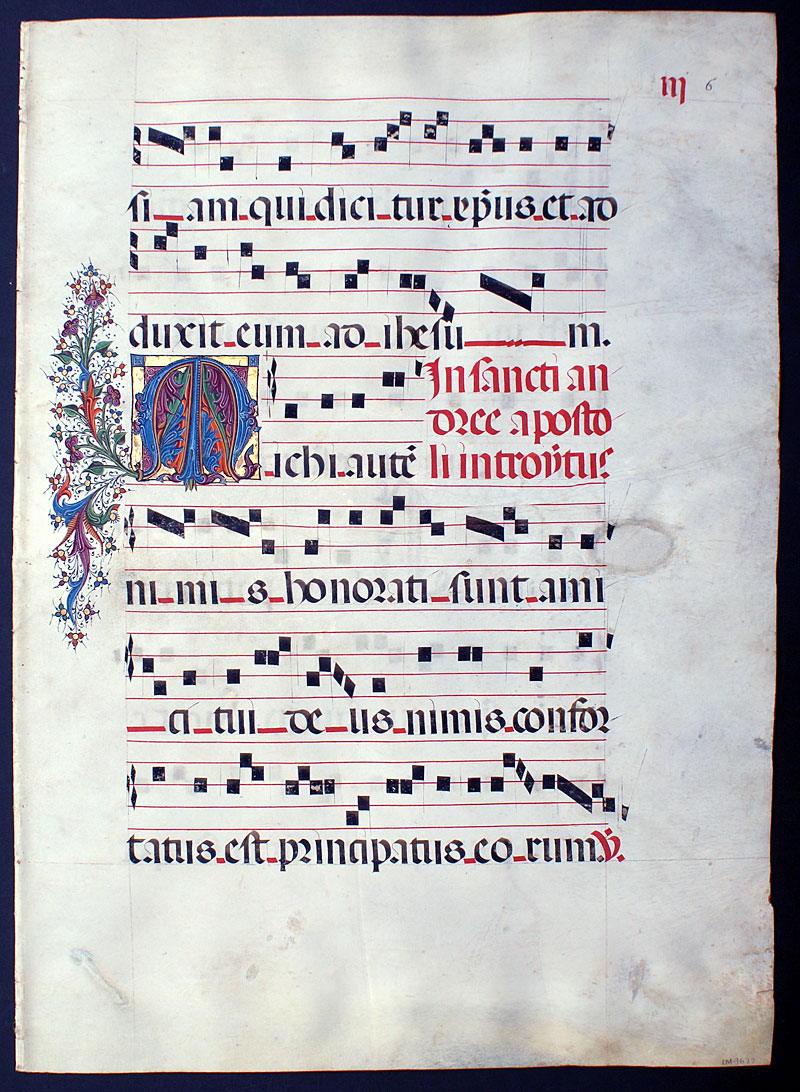 iij 6
si am qui dici tur xp̃us et ad
duxit eum ad ihesu m.
In sancti an
dree aposto
Michi autẽ li introytus
ni mi s honorati sunt ami
ci tui de us nimis confor
tatus est principatus eo rum. ℣.